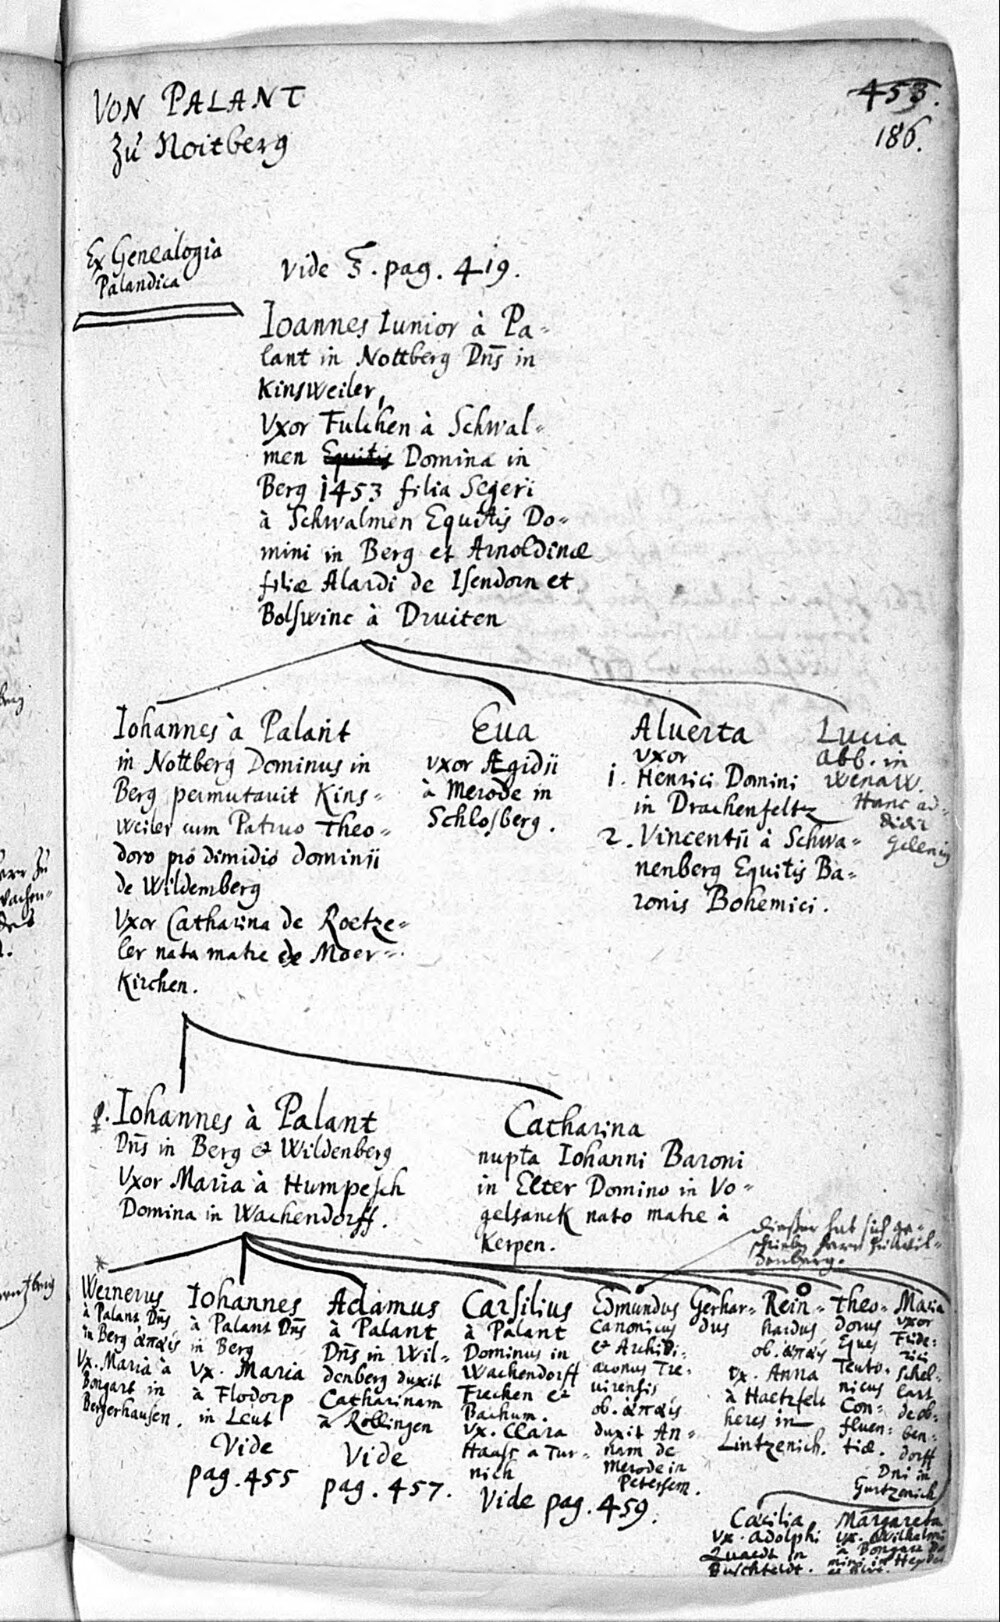 VON PALANT
Zu Noitberg
453.
186.
Ex Genealogia
Palandica
Vide ζ. pag. 419.
Ioannes Iunior à Pa-
lant in Nottberg Dn̄s in
Kinsweiler,
Vxor Fulchen à Schwal-
men Equitis Domina in
Berg 1453 filia Segeri
à Schwalmen Equitis Do-
mini in Berg et Arnoldinæ
filiæ Alardi de Isendorn et
Bolswinc à Druiten
Iohannes à Palant
in Nottberg Dominus in
Berg permutavit Kins-
weiler cum Patruo Theo-
doro pro dimidio dominii
de Wildemberg
Vxor Catharina de Roetze-
ler nata matre de Moer-
Kirchen.
Eua
vxor Ægidii
à Merode in
Schlosberg.
Aluerta
vxor
1. Henrici Domini
in Drachenfeltz
2. Vincentii à Schwa-
nenberg Equitis Ba-
ronis Bohemici.
Lucia
Abb. in
Wenaw.
Hanc ad-
didi
Gelenig
Iohannes à Palant
Dn̄s in Berg & Wildenberg
Vxor Maria à Humpesch
Domina in Wachendorff.
Catharina
nupta Iohanni Baroni
in Elter Domino in Vo-
gelsanck nato matre à
Kerpen.
dieser hat sich ge-
schrieben Herr zu Wil-
denberg.
Wernerus
à Palant Dn̄s
in Berg ἄπαις
Vx. Maria à
Bongart in
Bergerhausen.
Iohannes
à Palant Dn̄s
in Berg
Vx. Maria
à Flodorp
in Leut
Vide
pag. 455
Adamus
à Palant
Dn̄s in Wil-
denberg duxit
Catharinam
à Röllingen
Vide
pag. 457.
Carsilius
à Palant
Dominus in
Wachendorff
Frechen et
Bachum.
Vx. Clara
Haass a Tur-
nich
Vide pag. 459.
Edmundus
Canonicus
et Archidi-
aconus Tre-
uirensis
ob. ἄπαις
duxit An-
nam de
Merode in
Petersem.
Gerhar-
dus
Rein-
hardus
ob. ἄπαις
vx. Anna
à Haetzfelt
heres in
Lintzenich.
Theo-
dorus
Eques
Teuto-
nicus
Con-
fluen-
tiæ.
Maria
vxor
Fride-
rici
Schel-
lart
de ob-
ben-
dorff
Dni in
Gurtzenich
Cæcilia
vx. Adolphi
Quaedt in
Buschfeldt.
Margareta
vx. Wilhelmi
à Bongart Do
mini in Heyden